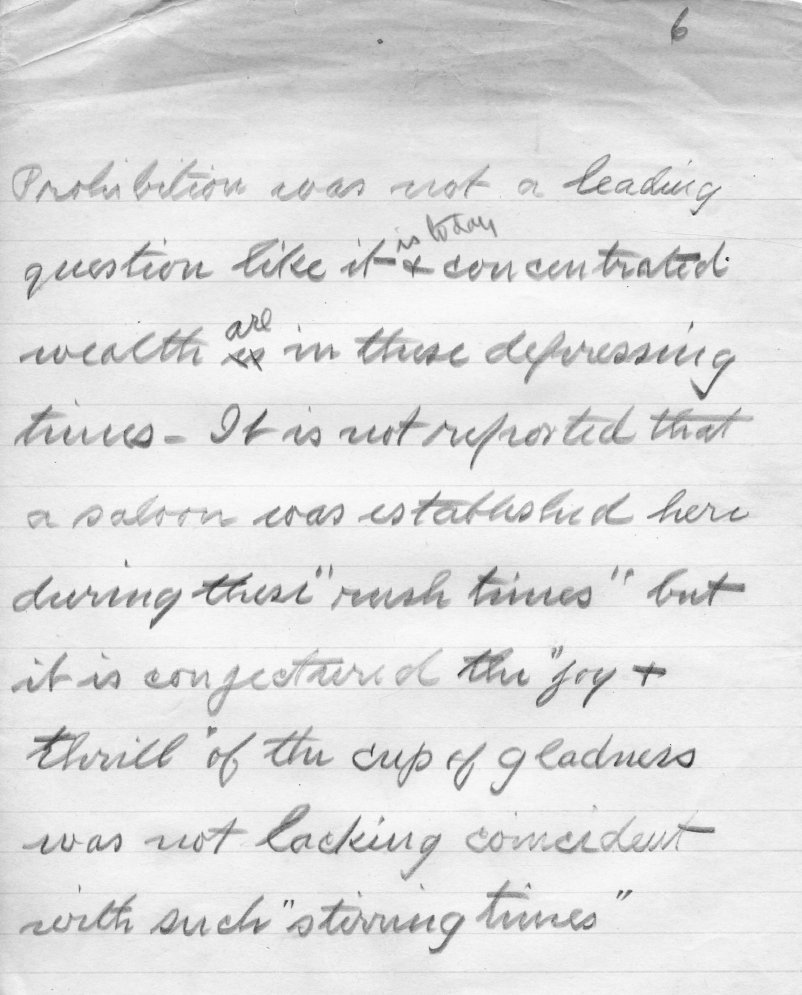 6
Prohibition was not a leading
question like it is today & concentrated
wealth are in these depressing
times - It is not reported that
a saloon was established here
during these "rush times" but
it is conjectured the "joy &
thrill" of the cup of gladness
was not lacking coincident
with such "stirring times"